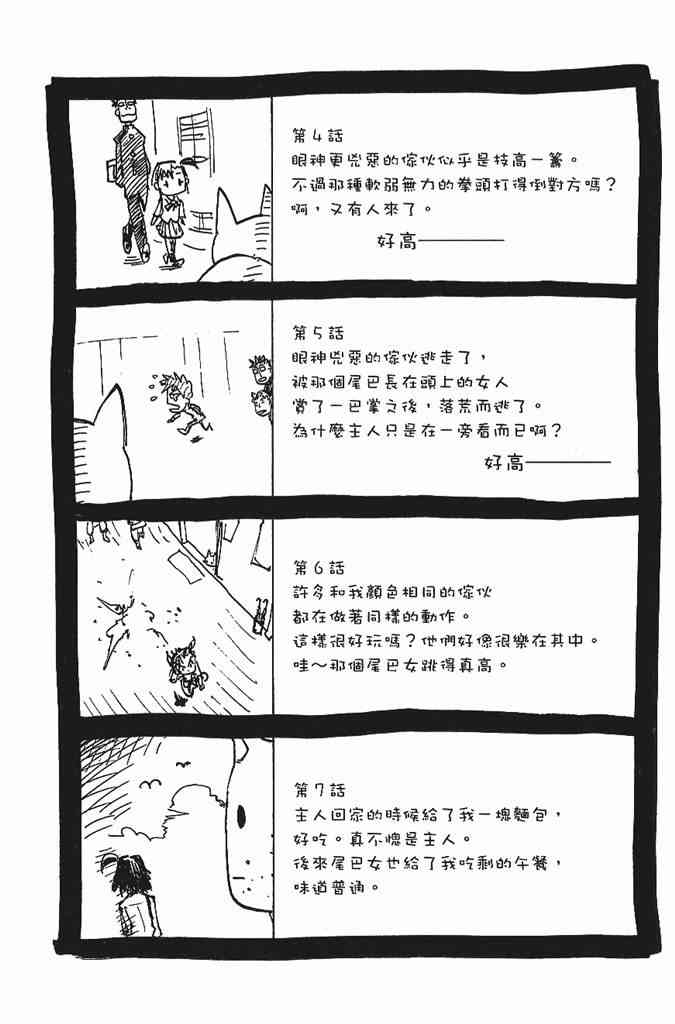 第4話
眼神更兇惡的傢伙似乎是技高一籌。
不過那種軟弱無力的拳頭打得倒對方嗎？
啊，又有人來了。
好高————
第5話
眼神兇惡的傢伙逃走了，
被那個尾巴長在頭上的女人
賞了一巴掌之後，落荒而逃了。
為什麼主人只是在一旁看而已啊？
好高————
第6話
許多和我顏色相同的傢伙
都在做著同樣的動作。
這樣很好玩嗎？他們好像很樂在其中。
哇～那個尾巴女跳得真高。
第7話
主人回家的時候給了我一塊麵包，
好吃。真不愧是主人。
後來尾巴女也給了我吃剩的午餐，
味道普通。